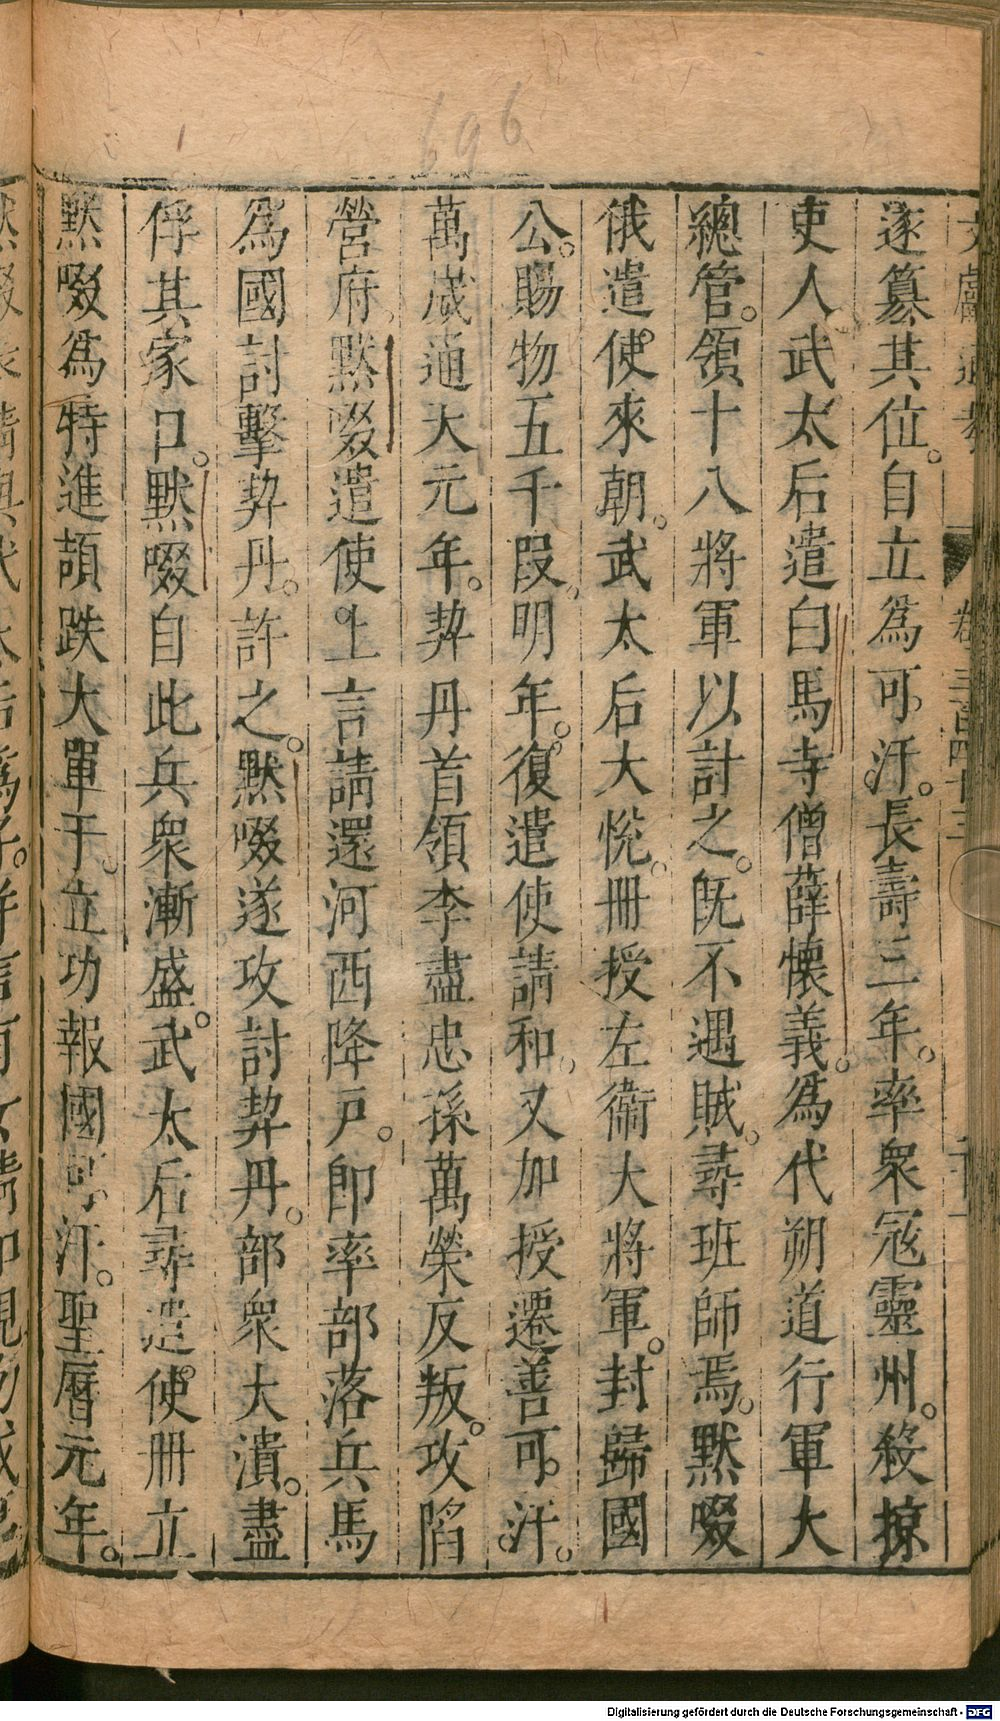 696
文獻通考 卷三百四十三
遂篡其位。自立爲可汗。長壽三年。率衆冦靈州。殺掠
吏人武太后遣白馬寺僧薛懷義。爲代朔道行軍大
總管。領十八將軍以討之。旣不遇賊。尋班師焉。黙啜
俄遣使來朝。武太后大恱。冊授左衞大將軍。封歸國
公。賜物五千段。明年。復遣使請和。又加授遷善可汗。
萬歲通天元年。契丹首領李盡忠孫萬榮反叛。攻陷
營府。黙啜遣使上言請還河西降戸。卽率部落兵馬
爲國討擊契丹。許之。黙啜遂攻討契丹。部衆大潰。盡
俘其家口。黙啜自此兵衆漸盛。武太后尋遣使冊立
黙啜爲特進頡跌大單于。立功報國可汗。聖曆元年。
Digitalisierung gefördert durch die Deutsche Forschungsgemeinschaft - DFG